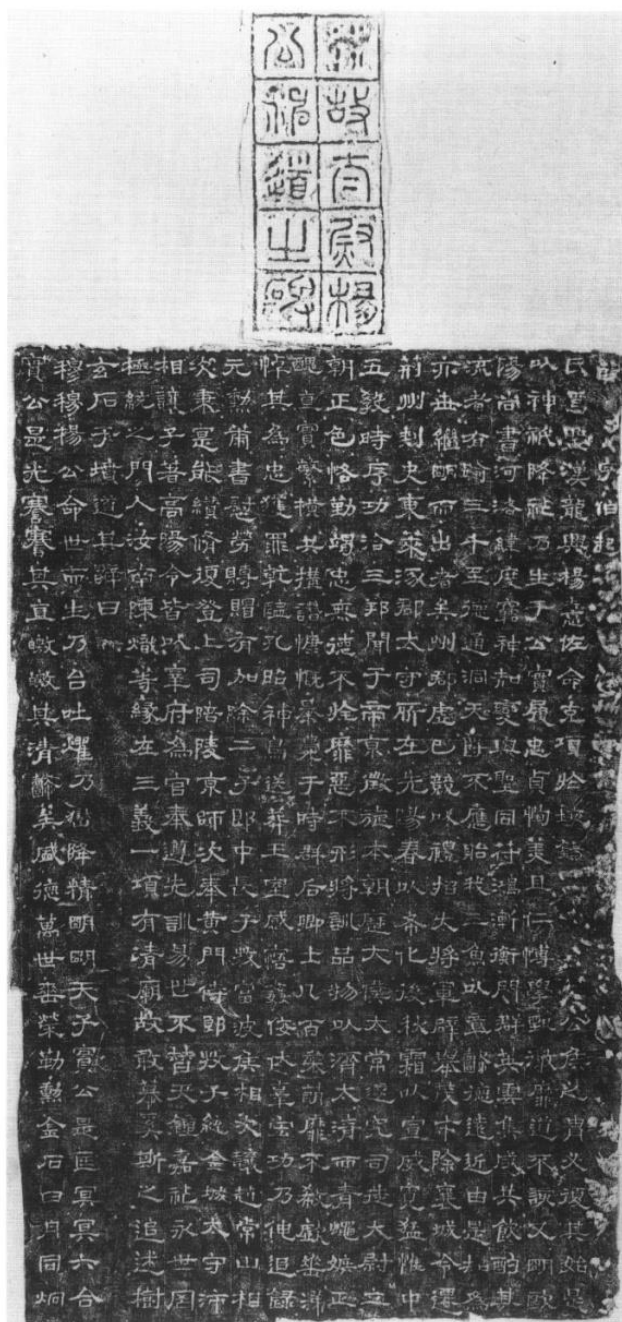 漢故太尉楊
公神道之碑
字伯起
氏焉聖漢龍興楊憙佐命克項於垓 公侯之胄必復其始是
以神祇降祉乃生于公實履忠貞恂美且仁博學甄微靡道不該又明歐
陽尚書河洛緯度窮神知變與聖同符鴻漸衡門群英雲集咸共飲酌其
流者有踰三千至德通洞天爵不應貽我三魚以章懿德遠近由是知為
亦世繼明而出者矣州郡虛己競以禮招大將軍辟舉茂才除襄城令遷
荊州刺史東萊涿郡太守所在先陽春以布化後秋霜以宣威寬猛惟中
五教時序功洽三邦聞于帝京徵旋本朝歷太僕太常遂究司徒太尉立
朝正色恪勤竭忠無德不旌靡惡不形將訓品物以濟太清而青蠅嫉正
醜直實繁橫共搆譖慷慨暴薨于時群后卿士凡百棃萌靡不欷歔垂涕
悼其為忠獲罪乾監孔昭神鳥送葬王室感悟姦佞伏辜宏功乃伸追錄
元勳策書慰勞賻賵有加除二子郎中長子牧富波侯相次讓趙常山相
次秉寔能纘脩復登上司陪陵京師次奉黃門侍郎牧子統金城太守沛
相讓子著高陽令皆以宰府為官奉遵先訓易世不替天鍾嘉祉永世罔
極統之門人汝南陳熾等緣在三義一頌有清廟故敢慕奚斯之追述樹
玄石于墳道其辭曰
穆穆楊公命世而生乃台吐耀乃嶽降精明明天子實公是匡冥冥六合
實公是光謇謇其直皦皦其清懿矣盛德萬世垂榮勒勳金石日月同炯